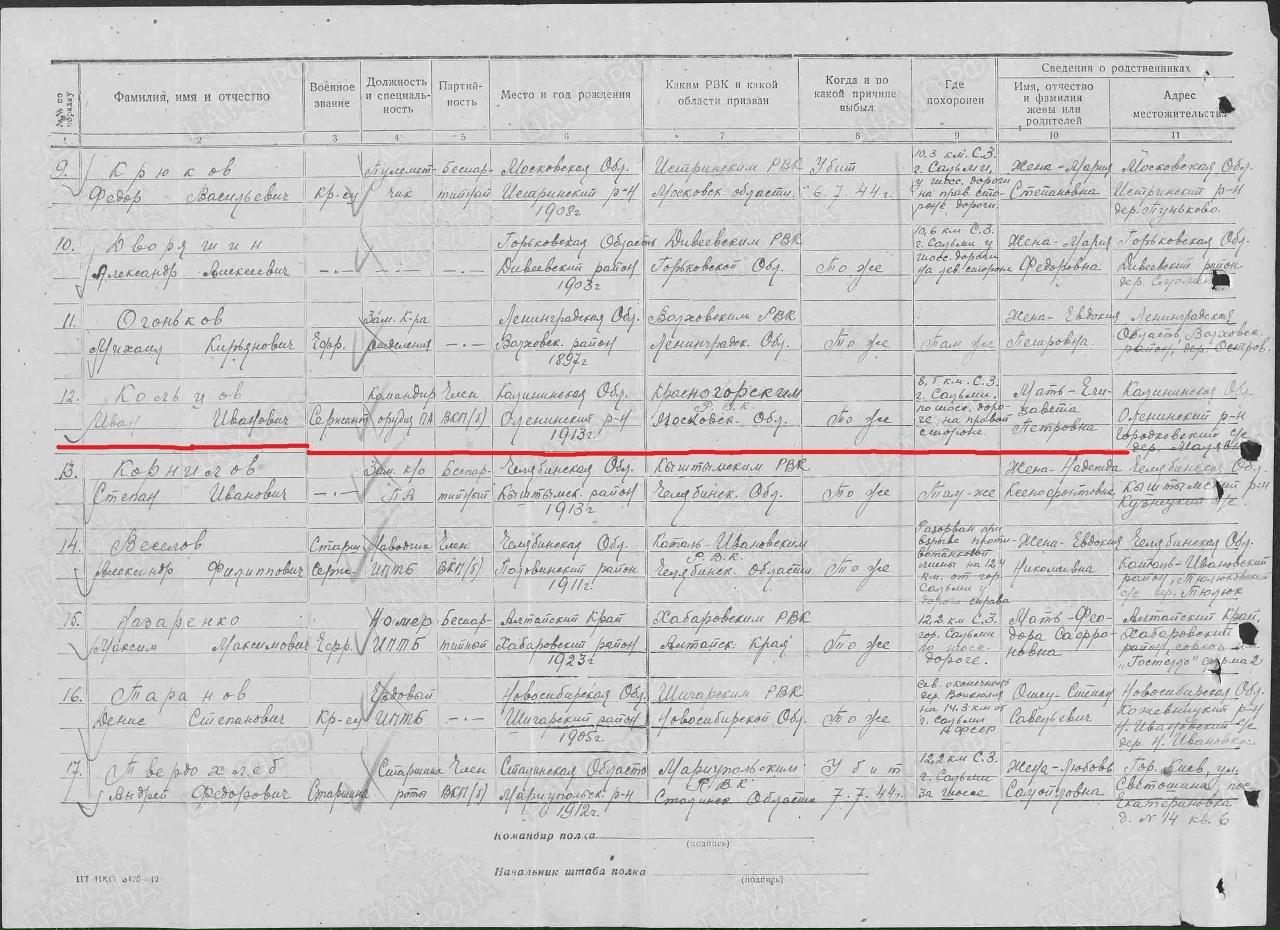 №№ по порядку
Фамилия, имя и отчество
Военное звание
Должность и специаль-ность
Партий-ность
Место и год рождения
Каким РВК и какой области призван
Когда и по какой причине выбыл
Где похоронен
Сведения о родственниках
Имя, отчество и фамилия жены или родителей
Адрес местожительства
1 2 3 4 5 6 7 8 9 10 11
9. Крюков Пулемет- Беспар- Московская Обл. Истринским РВК Убит 10,3 км. С.З. Жена-Мария Московская Обл.
г. Сальми,
Федор Васильевич Кр-ец чик тийный Истринский р-н Московск. области. 6.7.44г. у шосс. дороги на прав. сто- Степановна Истринский р-н
1908г роне дороги. дер. Пуньково.
10. Дворягин Горьковская Область Дивеевским РВК 10,6 км С.З. Жена-Мария Горьковская Обл.
г. Сальми у
Александр Алексеевич -.- -.- -.- Дивеевский район Горьковской Обл. То же шосс. дороги на лев. стороне Федоровна Дивеевский район
1903г дер.
11. Огоньков Зам. К-ра Ленинградская Обл. Волховским РВК Жена-Евдокия Ленинградская
Михаил Кирьянович Ефр. отделения -.- Волховск. район Ленинградск. Обл. То же Там же Петровна. Область, Волховск.
1897г район, дер. Остров.
12. Кольцов Командир Член Калининская Обл. Красногорским 8,5 км. С.З. Мать-Ели- Калининская Обл.
Р.В.К. г. Сальми,
Иван Иванович Сержант орудия ПА ВКП(б) Оленинский р-н Московск. Обл. То же по шосс. доро- завета Оленинский р-н
ге, на правой
1913г. стороне. Петровна Городковский с/с
дер.
13. Корнилов Зам. к/о Беспар- Челябинская Обл. Кыштымским РВК Жена-Надежда Челябинская Обл.
Степан Иванович -.- ПА тийный Кыштымск. район Челябинск. Обл. То же Там-же Ксенофонтовна Кыштымский р-н
1913г с/с.
14. Веселов Старш. Наводчик Член Челябинская Обл. Каталь-Ивановским Разорван при Жена-Евдокия Челябинская Обл.
Р.В.К. взрыве проти-
Александр Филиппович Серж. ИПТБ ВКП(б) район Челябинск. Области То же вотанковой мины на 12,4 Николаевна Каталь-Ивановский
1911г. км. от гор. район, Тюлюковский
Сальми у дороги справа с/с дер. Тюлюк
15. Назаренко Номер Беспар- Алтайский Край Хабаровским РВК 12,2 км С.З. Мать-Фео- Алтайский Край,
Максим Максимович Ефр. ИПТБ тийный Хабаровский район Алтайск. Края То же гор. Сальми по шоссе. дора Сафро- Хабаровский район, совхоз
1923г дороге. новна "Гостелло" ферма 2
16. Таранов Ездовый Новосибирская Обл. Шигарским РВК Сев. оконечность Отец-Степан Новосибирская Обл.
дер.
Денис Степанович Кр-ец ИПТБ -.- Шигарский район Новосибирской Обл. То же на 14.3 км от Савельевич Кожевницкий р-н
1905г. г. Сальми Н. Ивановский с/с
дер. Н. Ивановка
17. Твердохлеб Старшина Член Сталинская Область Мариупольским Убит 12,2 км С.З. Жена-Любовь Гор. Киев, ул.
Р.В.К.
Андрей Федорович Старшина роты ВКП(б) Мариупольск. р-н Сталинск. Область 7.7.44г. г. Сальми за шоссе Самойловна Светошина, пос.
1912г. Екатериновка
д. N 14 кв. 6
Командир полка
(подпись)
Начальник штаба полка
(подпись)